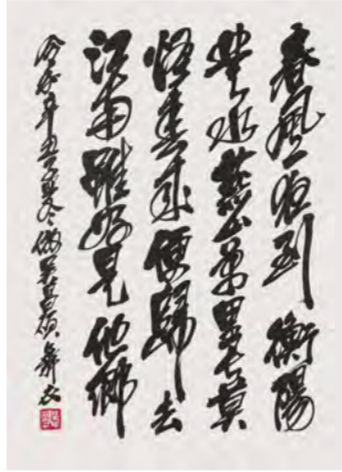 春風一夜到衡陽
楚水燕山萬里長莫
怪春來便歸去
江南雖好是他鄉
冬倣